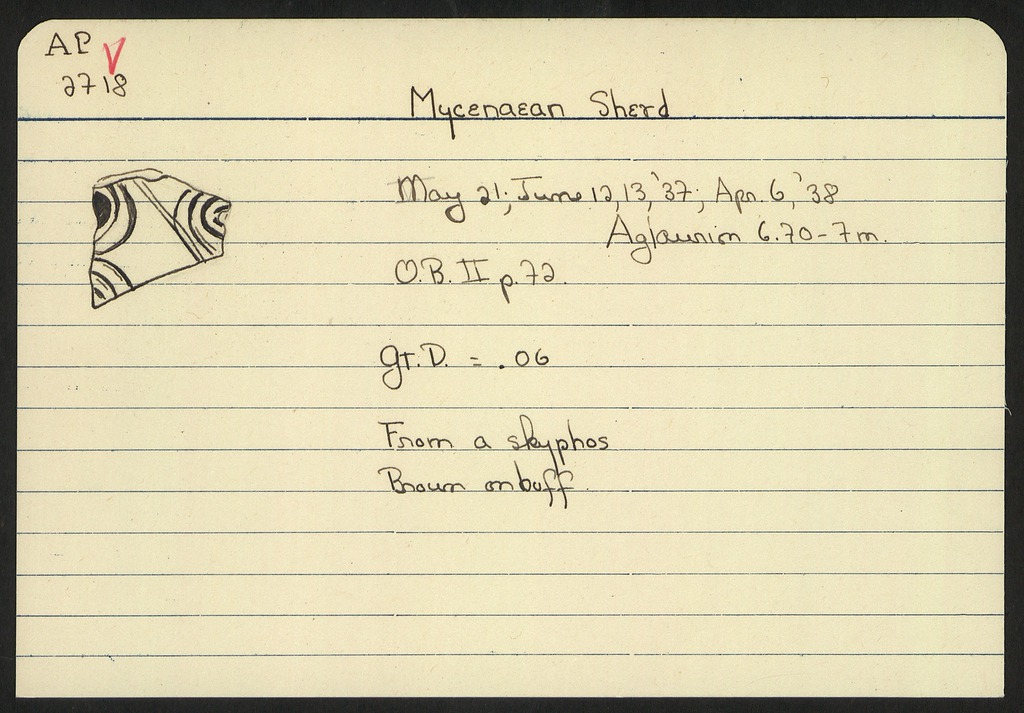 AP
2718
Mycenaean Sherd
May 21; June 12, 13, '37; Apr. 6, '38
Aglaurion 6.70-7m.
O.B. II p.72.
Gr. D. = .06
From a skyphos
Brown on buff